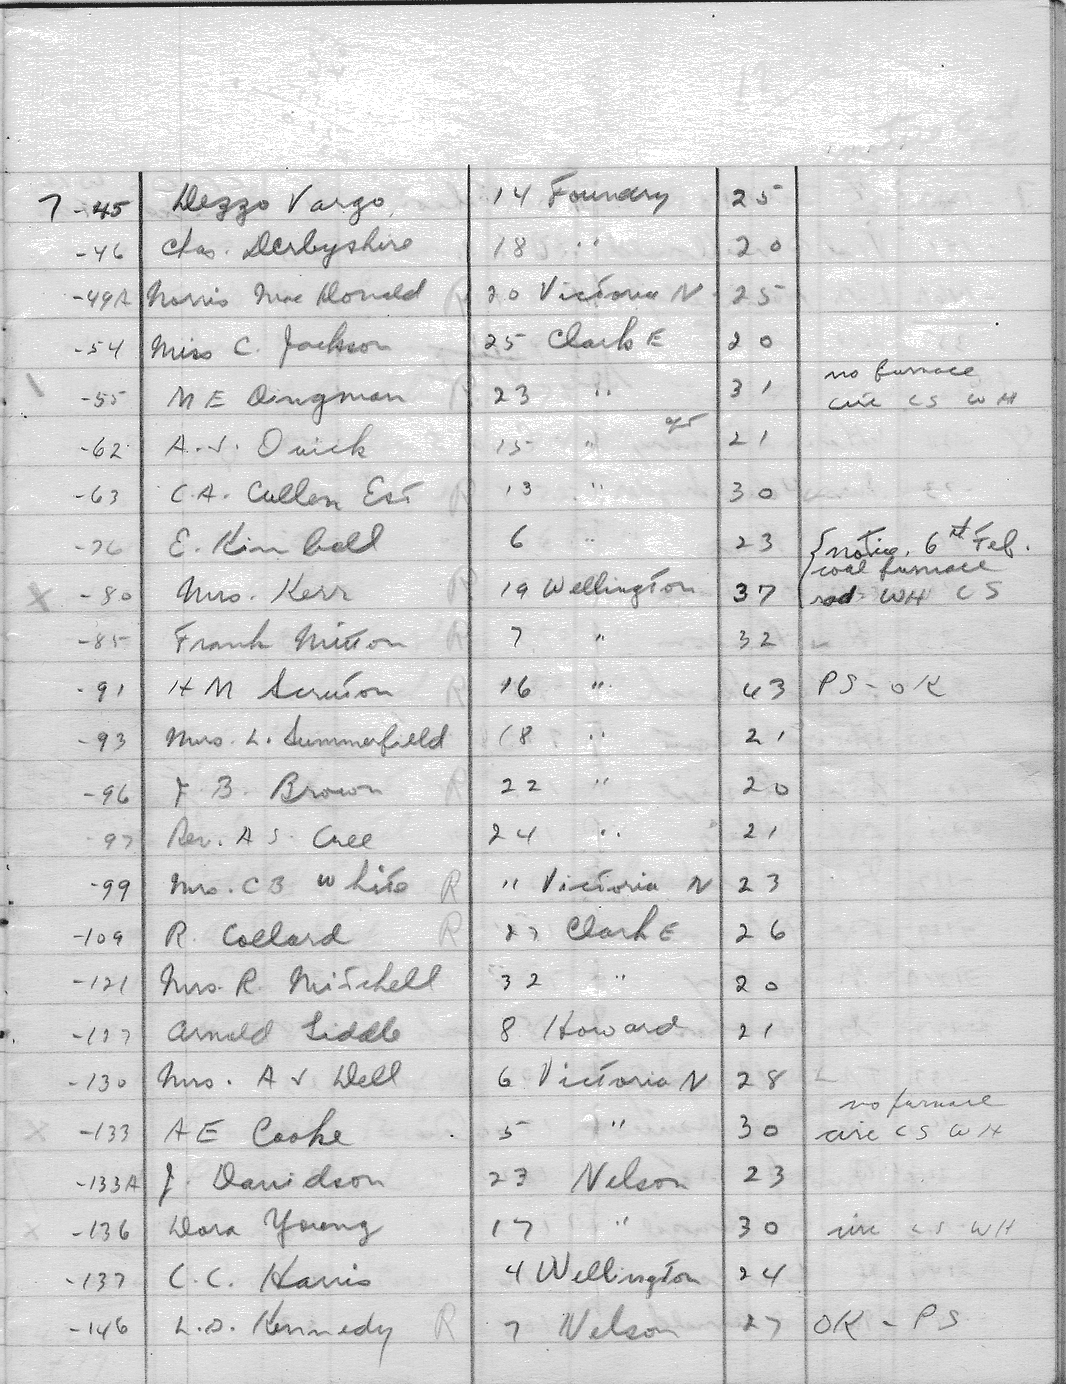 7-45 Dezzo Vargo 14 Foundry 25
-46 Chas. Derbyshire 18 " 20
-49A Norris MacDonald R 20 Victoria N 25
-54 Miss C. Jackson 25 Clark E 20
no furnace
-55 M E Dingman R 23 " 31 circ CS WH
-62 A.J. Quick 15 " 21
-63 C.A. Cullen Est R 13 " 30
-76 E. Kimball 6 " 23 notice. 6th Feb.
coal furnace
x -80 Mrs. Kerr R 19 Wellington 37 rad WH CS
-85 Frank Mitton R 7 " 32
-91 H M Scruton R 16 " 43 PS-OK
-93 Mrs. L. Summerfield 18 " 21
-96 F. B. Brown R 22 " 20
-97 Rev. A S. Cree 24 " 21
-99 Mrs. C B White R " Victoria N 23
-109 R. Collard R 27 Clark E 26
-121 Mrs. R. Mitchell 32 " 20
-127 Arnold Liddle 8 Howard 21
-130 Mrs. A V Dell 6 Victoria N 28
no furnace
x -133 A E Cooke 5 " 30 circ CS WH
-133A J. Davidson 23 Nelson 23
x -136 Dora Young 17 " 30 circ CS WH
-137 C.C. Harris 4 Wellington 24
-146 L.D. Kennedy R 7 Nelson 27 OK - PS